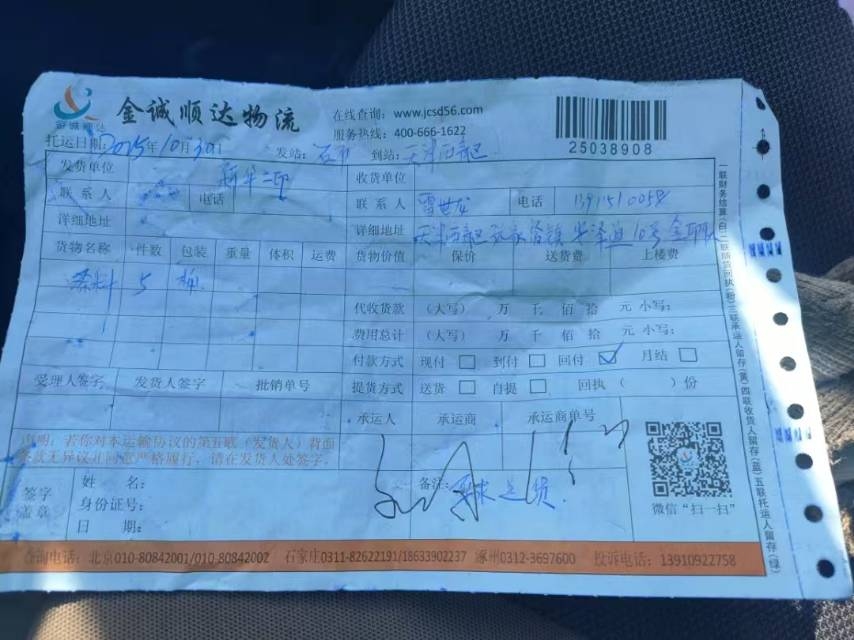 金诚顺达物流
金诚顺达
在线查询：www.jcsd56.com
服务热线：400-666-1622
25038908
托运日期：2015年10月30日 发站：石市 到站：天津西青区
发货单位 新华二印 收货单位
联系人 电话 联系人 电话
详细地址 详细地址 天津西青区 10号
货物名称 件数 包装 重量 体积 运费 货物价值 保价 送货费 上楼费
5
代收货款 （大写） 万 千 佰 拾 元 小写：
费用总计 （大写） 万 千 佰 拾 元 小写：
付款方式 现付 □ 到付 □ 回付 ☑ 月结 □
受理人签字 发货人签字 批销单号 提货方式 送货 □ 自提 □ 回执（ ）份
承运人 承运商 承运商单号
声明：若你对本运输协议的第五联（发货人）背面
条款无异议并同意严格履行，请在发货人处签字。
签字
盖章
姓 名：
身份证号：
日 期：
备注： 要求送货
微信“扫一扫”
一联财务结算（白）二联随货回执（粉）三联承运人留存（黄）四联收货人留存（蓝）五联托运人留存（绿）
查询电话：北京010-80842001/010-80842002 石家庄0311-82622191/18633902237 涿州0312-3697600 投诉电话：13910922758